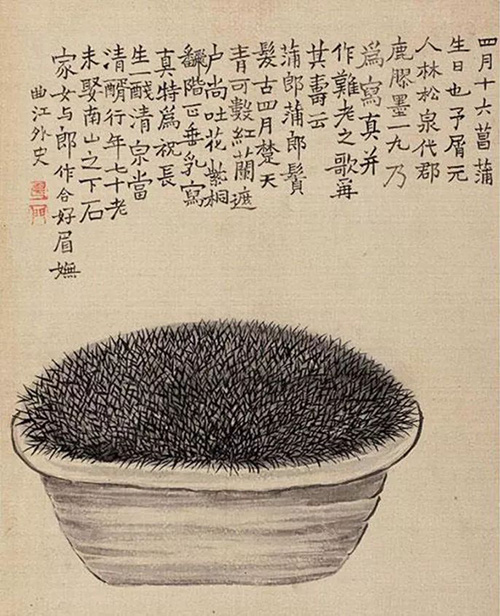 四月十六菖蒲
生日也予屑元
人林松泉代郡
鹿膠墨一丸乃
為寫真并
作難老之歌爯
其壽云
蒲郎蒲郎鬢
髮古四月楚天
青可數紅蘭遮
户尚吐花紫桐
翻階正垂乳寫
真特為祝長
生一醆清泉當
清醑行年七十老
未娶南山之下石
家女与郎作合好眉嫵
曲江外史